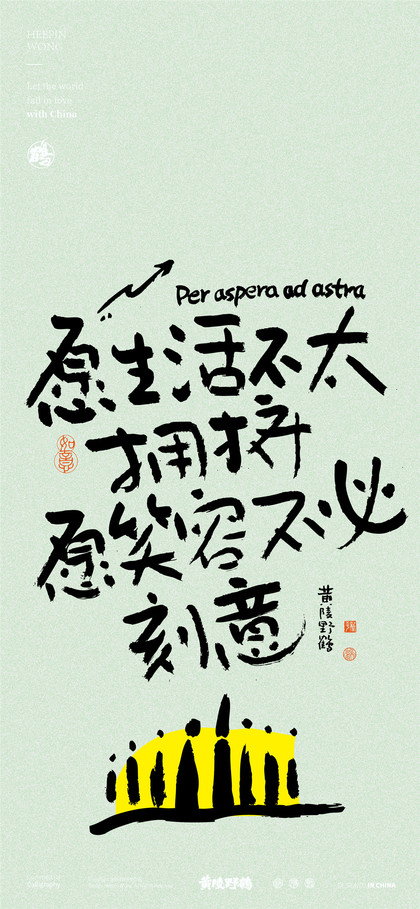 Let the world
fall in love
with China
Per aspera ad astra
愿生活不太
拥挤
愿笑容不必
刻意
如意
黄陵野鹤
黄陵野鹤
IN CHINA